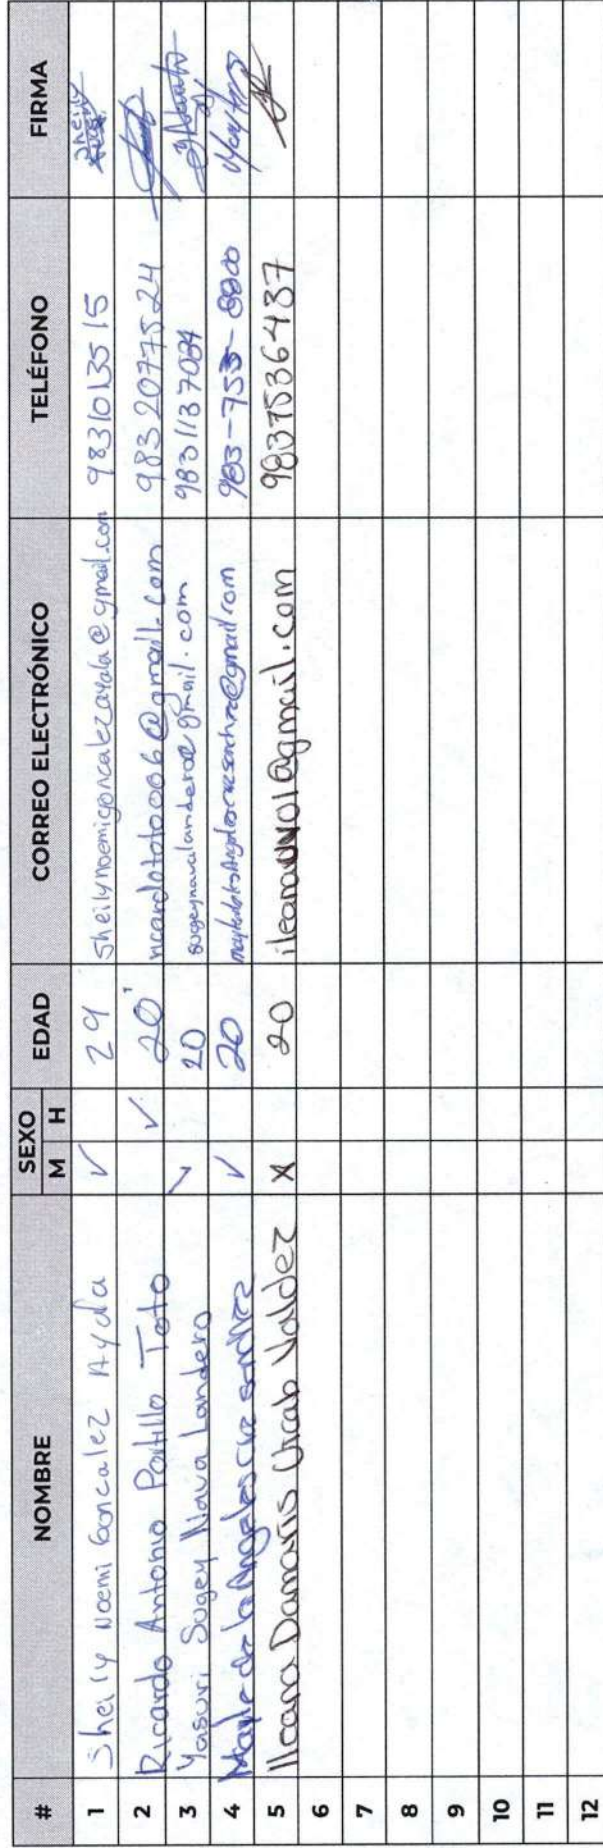 # NOMBRE SEXO EDAD CORREO ELECTRÓNICO TELÉFONO FIRMA
M H
1 Sheily Noemi Gonzalez Ayala ✓ 29 sheilynoemigonzalezayala@gmail.com 9831013515 Sheily
2 Ricardo Antonio Portillo Toto ✓ 20 ricardototo006@gmail.com 9832077524
3 Yasuri Sugey Nava Landero ✓ 20 sugeynavalandero@gmail.com 9831137084
4 Mayle de los Angeles Cruz Sanchez ✓ 20 983-753-8800
5 Ileana Damaris Uvaldez X 20 9837536437
6
7
8
9
10
11
12